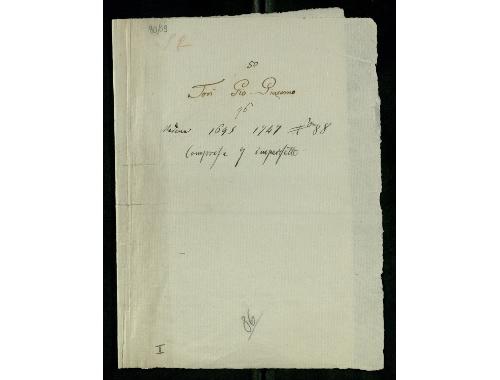 90/89
50
Tori Gio. Giacomo
96
Modena 1695 1747
88
Comprese 9 imperfette
86
I